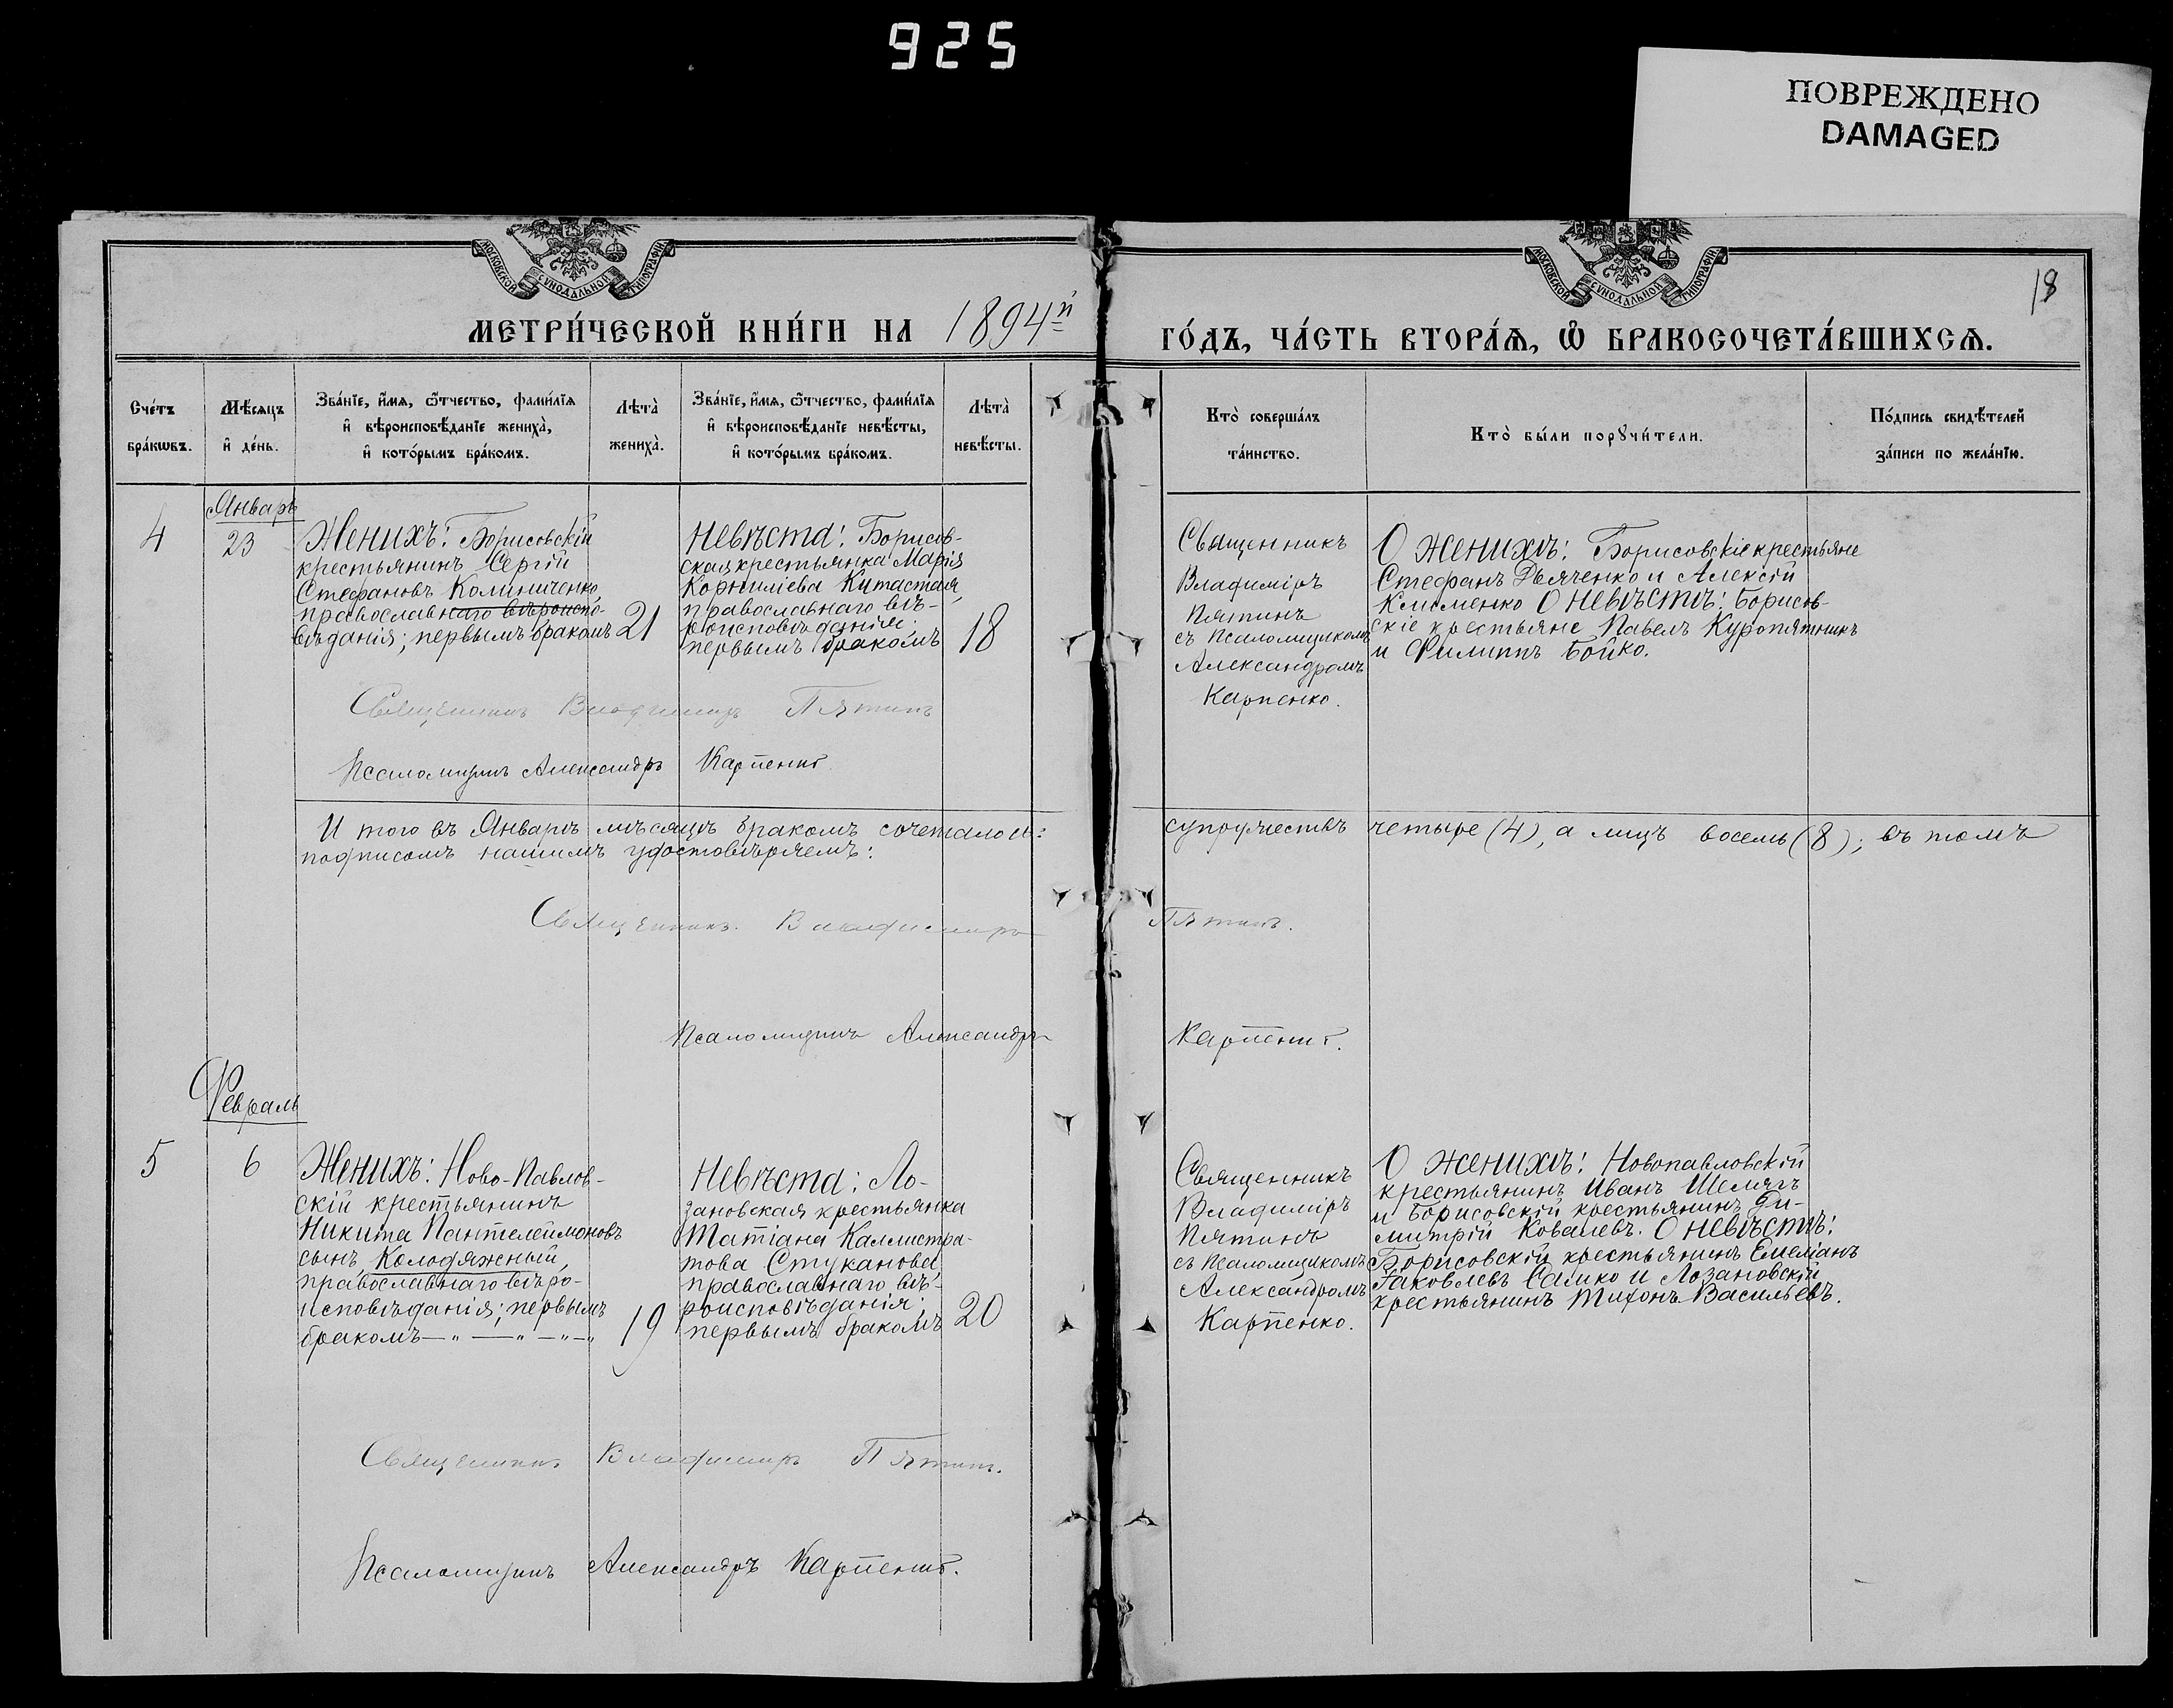 925
ПОВРЕЖДЕНО
DAMAGED
МОСКОВСКОЙ СѴНОДАЛЬНОЙ ТИПОГРАФІИ
МОСКОВСКОЙ СѴНОДАЛЬНОЙ ТИПОГРАФІИ
18
МЕТРИ́ЧЕСКОЙ КНИ́ГИ НА 1894й
ГО́ДЪ, ЧА́СТЬ ВТОРА́Я, Ѽ БРАКОСОЧЕТА́ВШИХСЯ.
Сче́тъ
бра́кωвъ.
Мѣ́сяцъ
и҆ де́нь.
Зва́нїе, и҆́мя, ѿ́тчество, фами́лїя
и҆ вѣроисповѣ́данїе жениха̀,
и҆ кото́рымъ бра́комъ.
Лѣта̀
жениха̀.
Зва́нїе, и҆́мя, ѿ́тчество, фами́лїя
и҆ вѣроисповѣ́данїе невѣ́сты,
и҆ кото́рымъ бра́комъ.
Лѣта̀
невѣ́сты.
Кто̀ соверша́лъ
та́инство.
Кто̀ бы́ли порꙋчи́тели.
По́дпись свидѣ́телей
за́писи по жела́нїю.
Январь
4
23
Женихъ: Борисовскій
крестьянинъ Сергій
Стефановъ Колиниченко,
православнаго вѣроиспо-
вѣданія; первымъ бракомъ
21
Невѣста: Борисов-
ская крестьянка Марія
Корниліева Китастая,
православнаго вѣ-
роисповѣданія;
первымъ бракомъ
18
Священникъ
Владиміръ
Пятинъ
съ псаломщикомъ
Александромъ
Карпенко.
О женихѣ: Борисовскіе крестьяне
Стефанъ Дьяченко и Алексій
Клименко О невѣстѣ: Борисов-
скіе крестьяне Павелъ Куропятникъ
и Филиппъ Бойко.
Священникъ Владимиръ Пятинъ
Псаломщикъ Александръ Карпенко
И того въ Январѣ мѣсяцѣ бракомъ сочеталось: супружествъ четыре (4), а лицъ восемь (8); въ томъ
подписомъ нашимъ удостовѣряемъ:
Священникъ Владимиръ Пятинъ.
Псаломщикъ Александръ Карпенко.
Февраль
5
6
Женихъ: Ново-Павлов-
скій крестьянинъ
Никита Пантелеймоновъ
сынъ, Колодяжный,
православнаго вѣро-
исповѣданія; первымъ
бракомъ — „ — „ — „ — „
19
Невѣста: Ло-
зановская крестьянка
Татіана Каллистра-
това Стуканова
православнаго вѣ-
роисповѣданія;
первымъ бракомъ
20
Священникъ
Владиміръ
Пятинъ
съ псаломщикомъ
Александромъ
Карпенко.
О женихѣ: Новопавловскій
крестьянинъ Иванъ Шелягъ
и Борисовскій крестьянинъ Ди-
митрій Ковалевъ. О невѣстѣ:
Борисовскій крестьянинъ Емеліанъ
Іаковлевъ Сашко и Лозановскій
крестьянинъ Тихонъ Васильевъ.
Священникъ Владимиръ Пятинъ.
Псаломщикъ Александръ Карпенко.